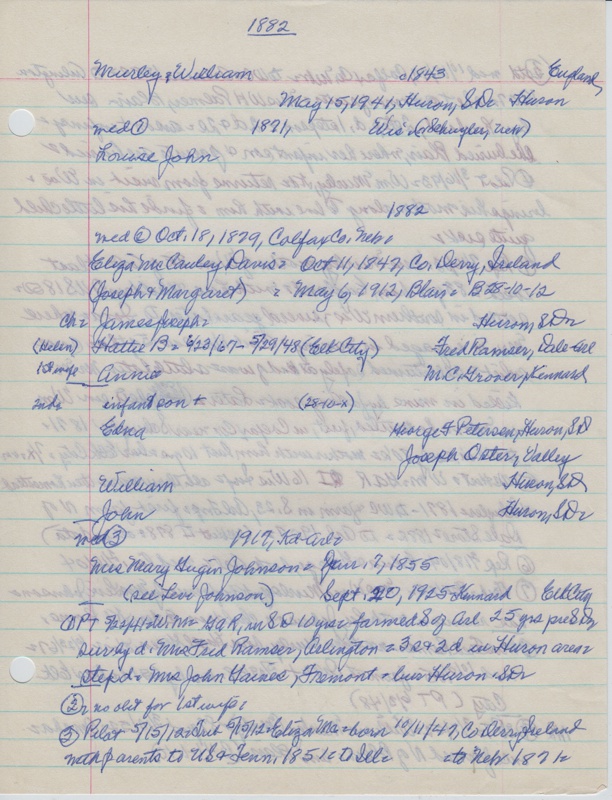 1882
Murley, William c1843 England
May 15, 1941, Huron, S.D. Huron
med ① 1871, Wis.
Louise John
1882
med ② Oct. 18, 1879, Colfax Co. Neb.
Eliza McCauley Davis = Oct 11, 1847, Co. Derry, Ireland
(Joseph & Margaret) = May 6, 1912, Blair = B 28-10-12
Ch = James Joseph = Huron, S.D.
(Helen) Hattie B = 6/22/67 - 5/29/48 (Elk City) Fred Ramser,
1st mge Annie M.C. Grover, Kennard
2nd = infant son + (28-10-x)
Edna George F Petersen, Huron, S.D
Joseph Oster, Valley
William Huron, S.D.
John Huron, S.D.
med ③ 1917,
Mrs Mary Johnson = Jan. 7, 1855
(see Levi Johnson) Sept. 20, 1925 Kennard Elk City
① PT Wm = GAR, in S D 10 yrs = farmed S of Arl 25 yrs
surv by d. Mrs Fred Ramser, Arlington = 3 s & 2 d in Huron area =
step d = Mrs John Haines, Fremont = bur Huron = S.D.
② no obit for 1st wife
③ Pilot 5/15/12 = Trib 5/15/12 = Eliza Mc = born 10/11/47, Co Derry, Ireland
with parents to US & Tenn, 1851 = to Ill = to Neb 1871 =